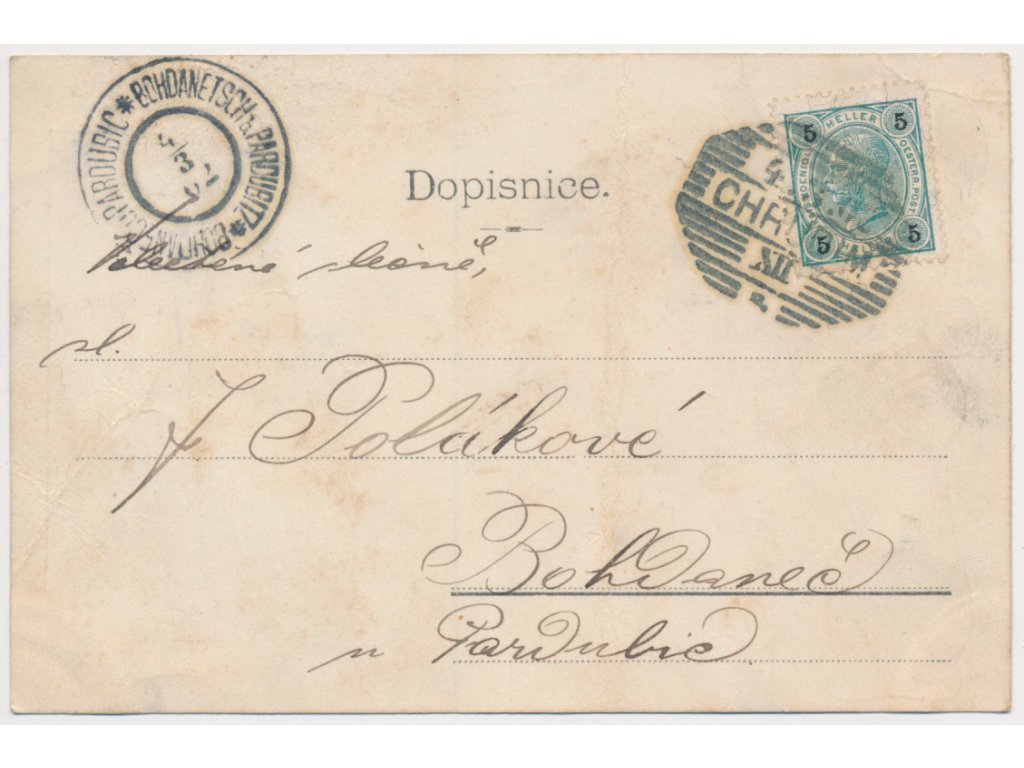 BOHDANETSCH b. PARDUBITZ
BOHDANEČ u PARDUBIC
4/3
Dopisnice.
5 HELLER 5
OESTERR. POST
5 5
CHR
sl.
J Polákové
Bohdaneč
u Pardubic